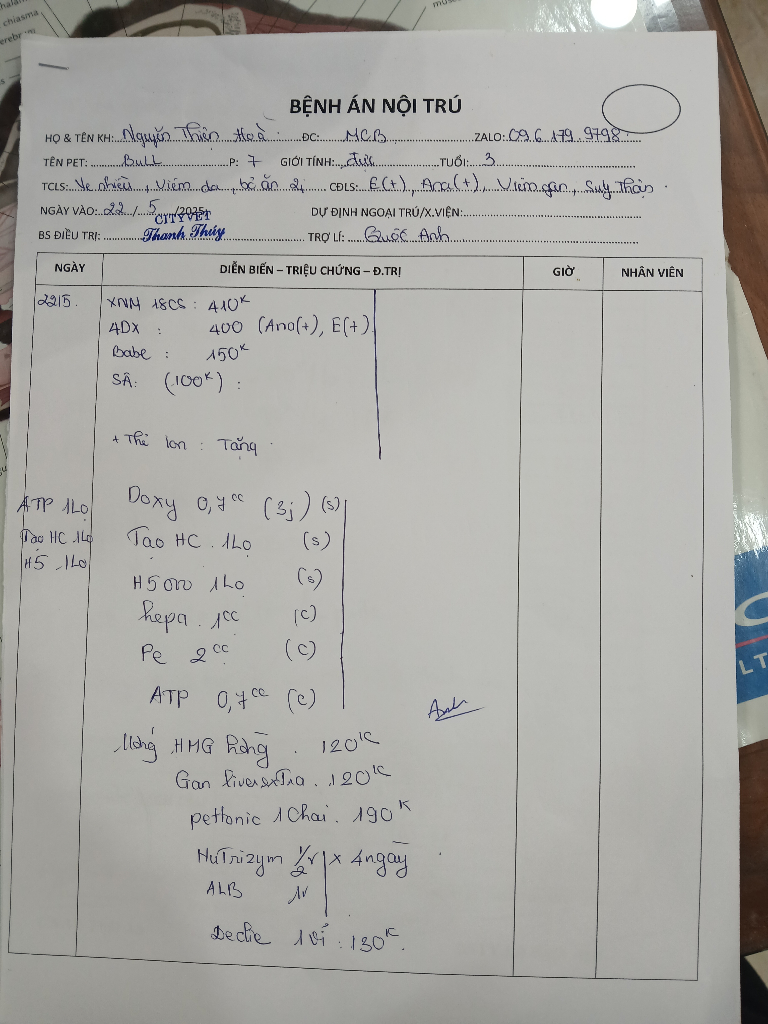 BỆNH ÁN NỘI TRÚ
HỌ & TÊN KH: Nguyễn Thiện Hoà ĐC: MCB ZALO: 096 179 9798
TÊN PET: BULL P: 7 GIỚI TÍNH: đực TUỔI: 3
TCLS: Ve nhiều, Viêm da, bỏ ăn 2j CĐLS: E(+), Ana(+), Viêm gan, Suy Thận.
NGÀY VÀO: 22 / 5 /2025 DỰ ĐỊNH NGOẠI TRÚ/X.VIÊN:
CITYVET
BS ĐIỀU TRỊ: Thanh Thúy TRỢ LÍ: Quốc Anh
NGÀY DIỄN BIẾN – TRIỆU CHỨNG – Đ.TRỊ GIỜ NHÂN VIÊN
22/5. XNM 18CS: 410K
4DX : 400 (Ana(+), E(+)
Babe : 150K
SÂ: (100K) :
+ Thẻ lon : Tặng
ATP 1Lọ Doxy 0,7cc (3j) (s)
Tạo HC 1Lọ Tạo HC. 1Lọ (s)
H5 .1Lọ H5000 1Lọ (s)
hepa. 1cc (c)
Pe 2cc (c)
ATP 0,7cc (c)
Anh
Uống HMG hồng . 120K
Gan liverextra. 120K
pettonic 1 Chai. 190K
Nutrizym 1/2v x 4 ngày
ALB 1v
1 vỉ : 130K.